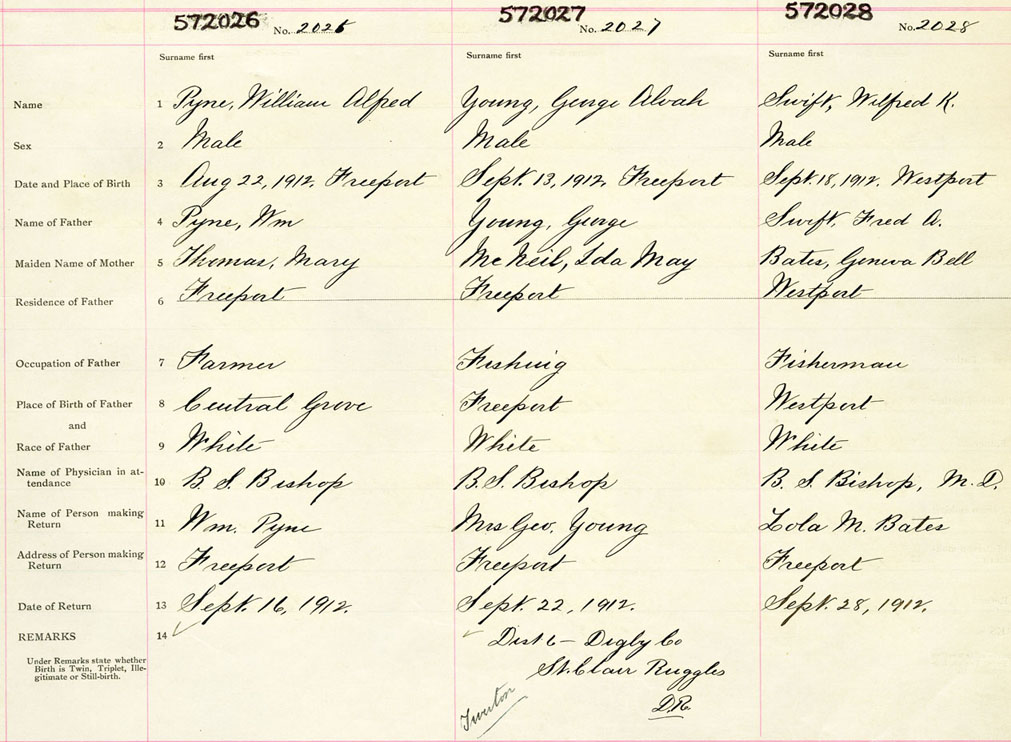 572026 No. 2026 572027 No. 2027 572028 No. 2028
Surname first Surname first Surname first
Name 1 Pyne, William Alfred Young, George Alvah Swift, Wilfred K.
Sex 2 Male Male Male
Date and Place of Birth 3 Aug 22, 1912, Freeport Sept. 13, 1912, Freeport Sept. 18, 1912. Westport
Name of Father 4 Pyne, Wm Young, George Swift, Fred A.
Maiden Name of Mother 5 Thomas, Mary McNeil, Ida May Bates, Geneva Bell
Residence of Father 6 Freeport Freeport Westport
Occupation of Father 7 Farmer Fishing Fisherman
Place of Birth of Father 8 Central Grove Freeport Westport
and
Race of Father 9 White White White
Name of Physician in at-
tendance 10 B. S. Bishop B. S. Bishop B. S. Bishop, M. D.
Name of Person making
Return 11 Wm. Pyne Mrs Geo. Young Lola M. Bates
Address of Person making
Return 12 Freeport Freeport Freeport
Date of Return 13 Sept. 16, 1912. Sept. 22, 1912. Sept. 28, 1912.
REMARKS 14 Dist 6 - Digby Co
Under Remarks state whether
Birth is Twin, Triplet, Ille-
gitimate or Still-birth.
St. Clair Ruggles
D.R.
Tiverton